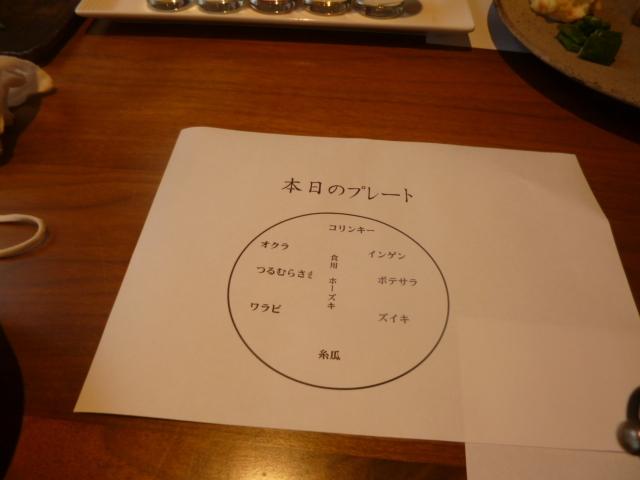 本日のプレート
コリンキー
オクラ
インゲン
食用 ホーズキ
つるむらさき
ポテサラ
ワラビ
ズイキ
糸瓜